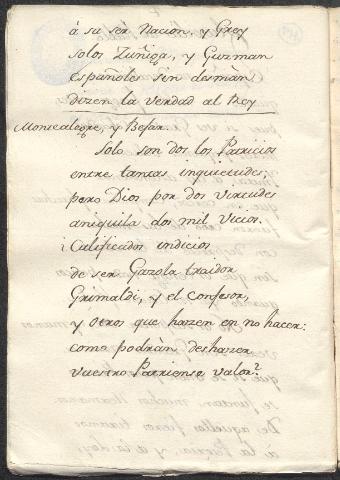 à su ser Nacion, y Grey
solos Zúñiga, y Guzman
españoles sin desmàn
dizen la verdad al Rey
Montealegre, y Bejar.
Solo son dos los Patricios
entre tantas inquietudes,
pero Dios por dos virtudes
aniquila dos mil vicios.
i Calificados indicios
de ser Gazola traidor
Grimaldi, y el confesor,
y otros que hazen en no hacer:
como podràn deshazer
vuestro Patriense valor?